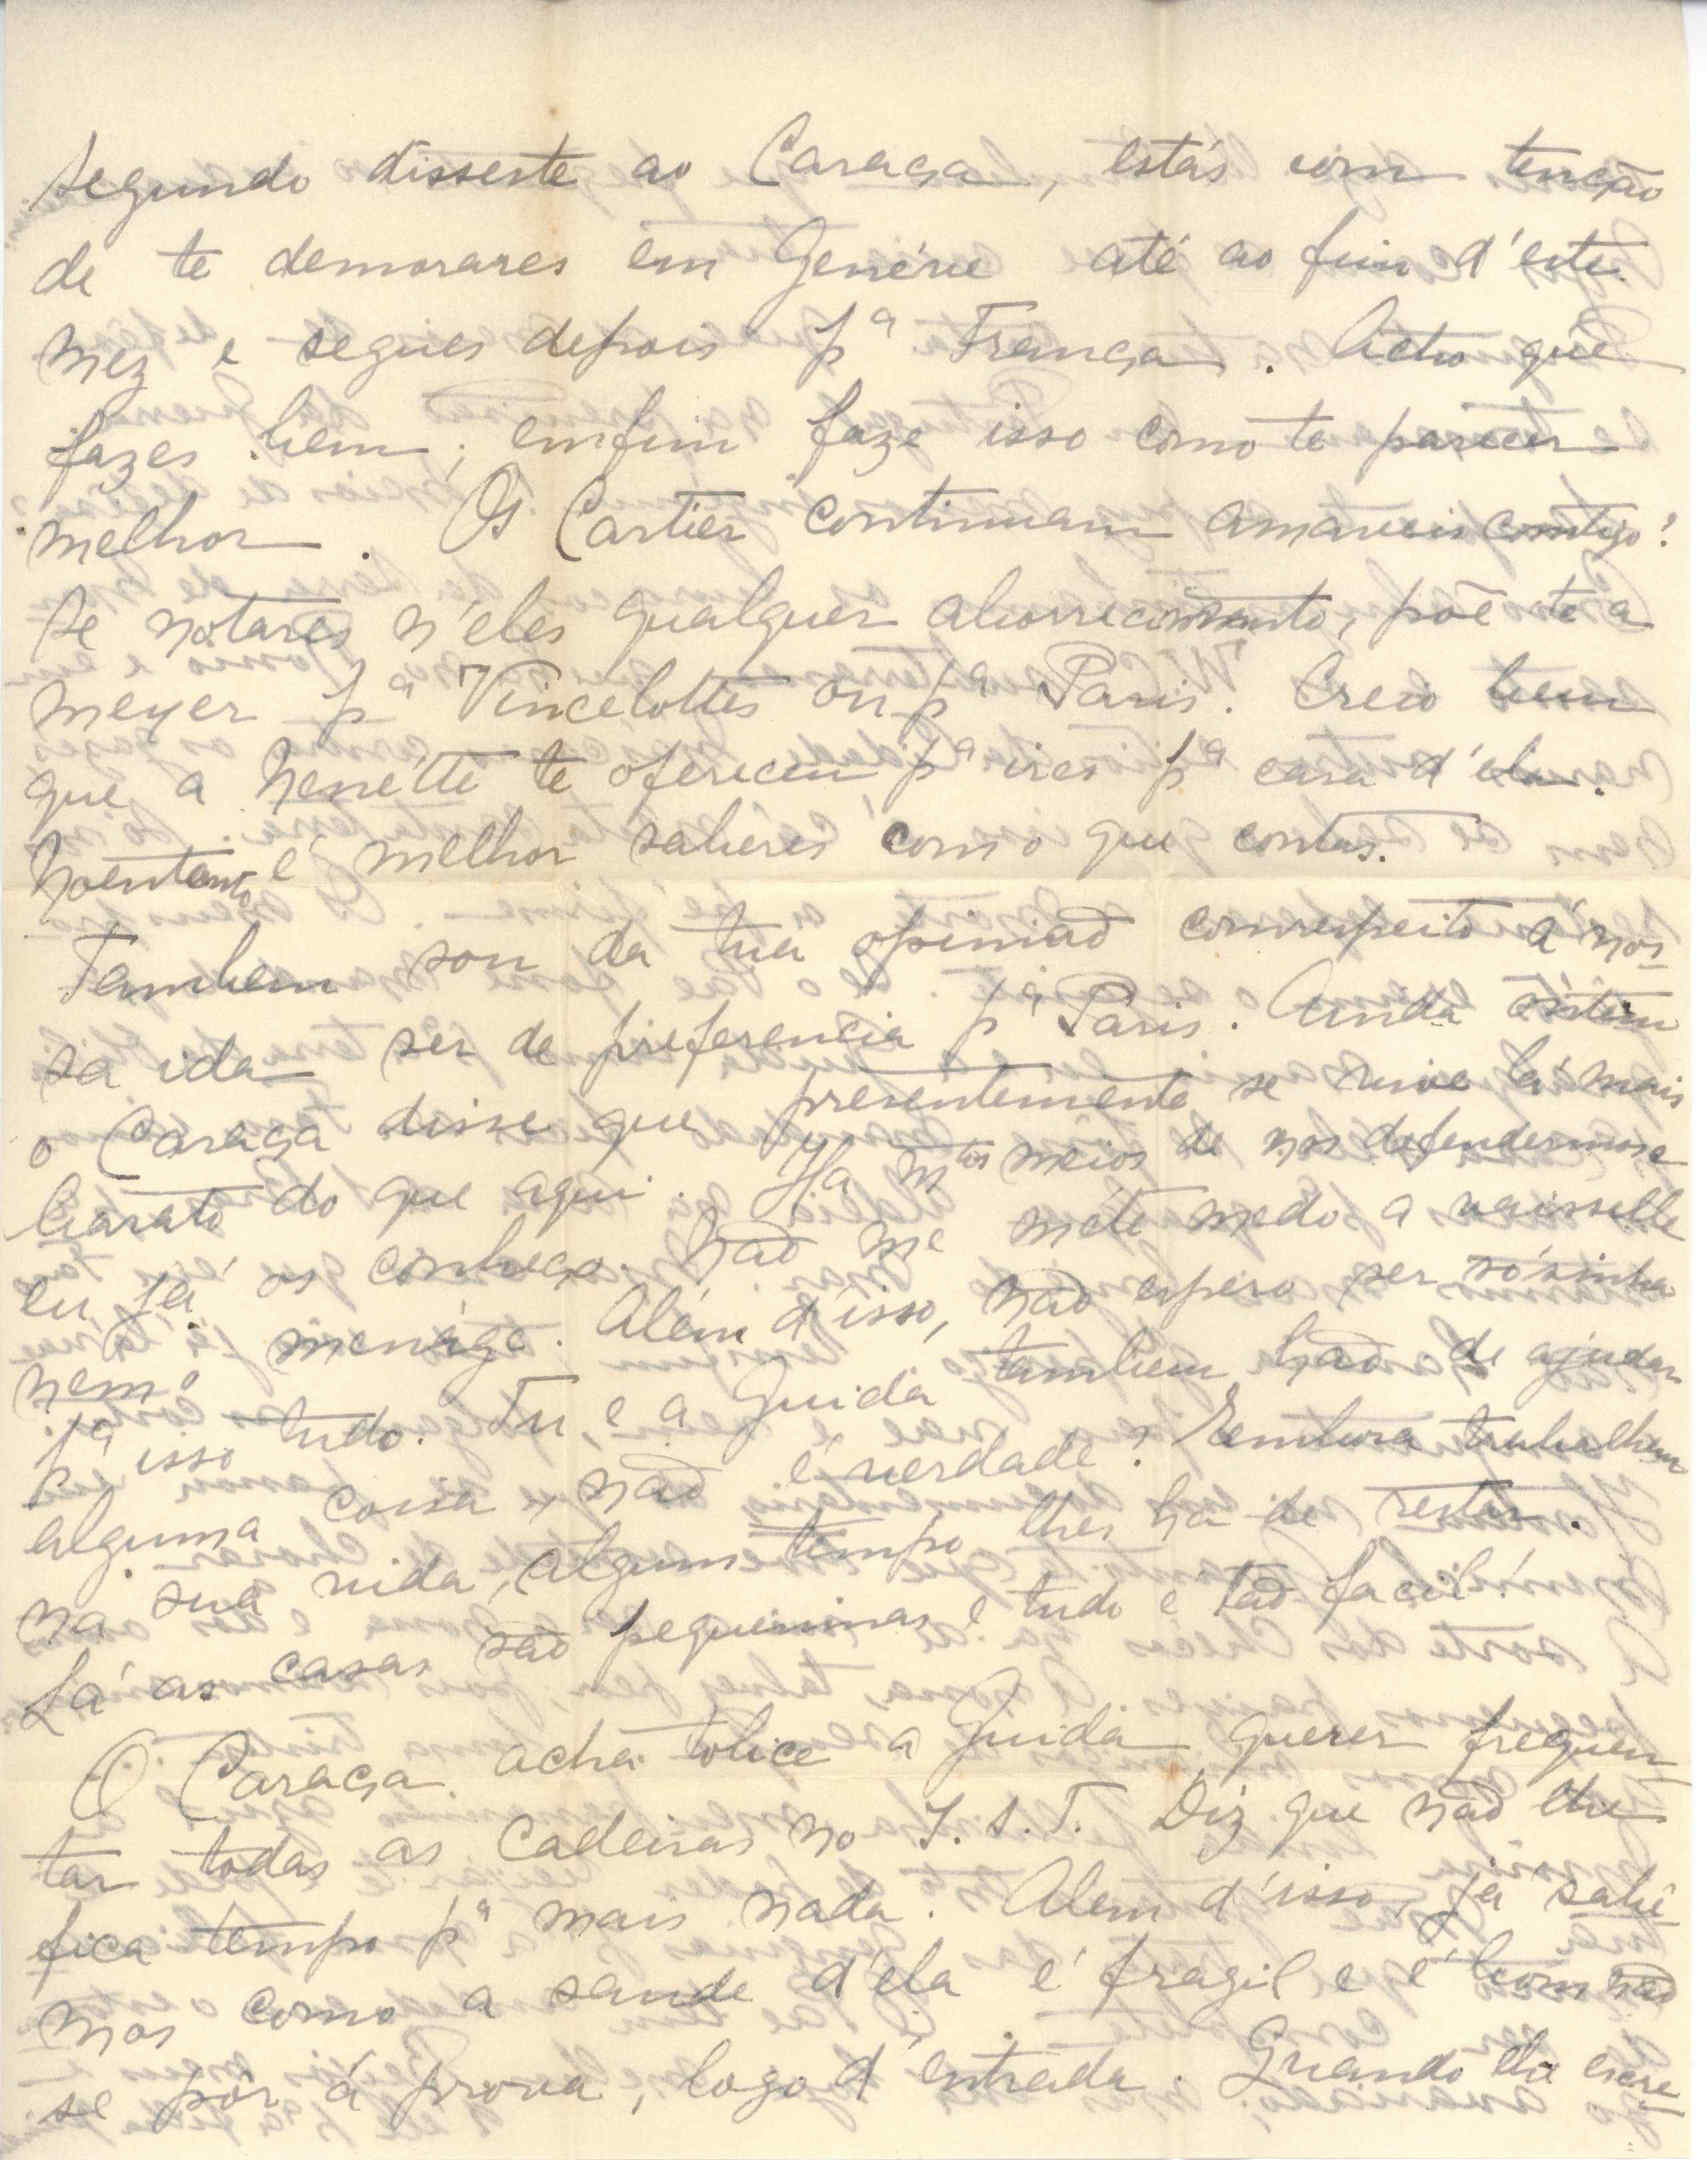 segundo disseste ao Caraça, estás com tenção
de te demorares em Genéve até ao fim d'este
mez e segues depois pª França. Acho que
fazes bem; emfim faze isso como te parecer
melhor. Os Cartier continuam amaveis comtigo?
Se notares n'eles qualquer aborrecimento, põe-te a
mexer pª Vincelottes ou pª Paris. Creio bem
que a Nenétte te ofereceu pª ires pª casa d'ela.
Noentanto é melhor saberes com o que contas.
Tambem sou da tua opinião com respeito á nos-
sa ida ser de preferencia pª Paris. Ainda ôntem
o Caraça disse que presentemente se vive lá mais
barato do que aqui. Ha mtos meios de nos defendermos e
eu já os conheço. Não me méte medo a vaisselle
nem o menáge. Além d'isso, não espero ser sósinha
pª isso tudo. Tu e a Guida tambem hão de ajudar
alguma coisa, não é verdade? Embora trabalhem
na sua vida, algum tempo lhes ha-de restar.
Lá as casas são pequeninas e tudo é tão facil!
O Caraça acha tolice a Guida querer frequen-
tar todas as cadeiras no I.S.T. Diz que não lhe
fica tempo pª mais nada. Alem d'isso, já sabe-
mos como a saude d'ela é fragil e é bom não
se pôr á prova, logo d'entrada. Quando ela escre-